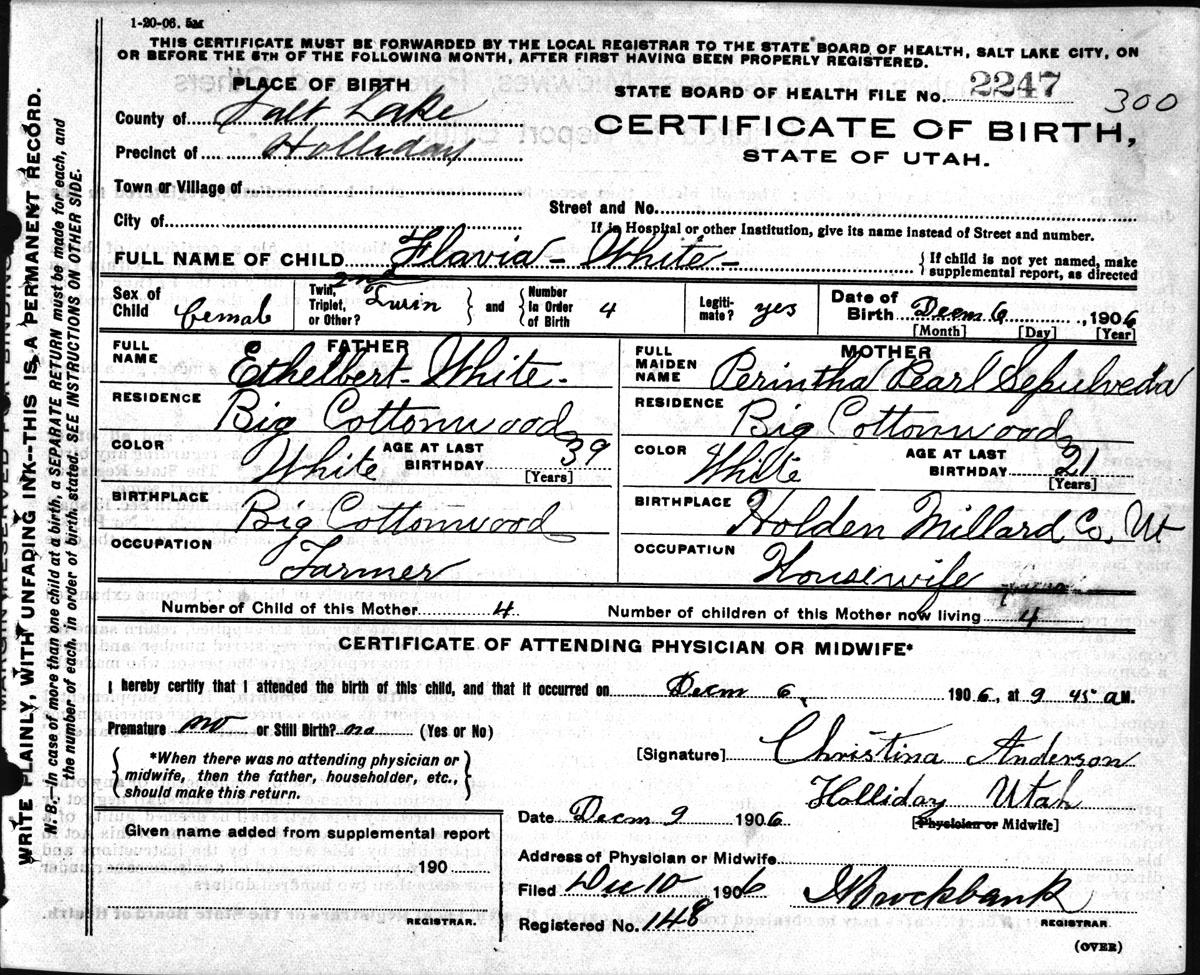 1-20-06. 5M
THIS CERTIFICATE MUST BE FORWARDED BY THE LOCAL REGISTRAR TO THE STATE BOARD OF HEALTH, SALT LAKE CITY, ON
OR BEFORE THE 5TH OF THE FOLLOWING MONTH, AFTER FIRST HAVING BEEN PROPERLY REGISTERED.
PLACE OF BIRTH
STATE BOARD OF HEALTH FILE No. 2247 300
County of Salt Lake
CERTIFICATE OF BIRTH,
Precinct of Holliday
STATE OF UTAH.
Town or Village of
Street and No.
City of
If in Hospital or other Institution, give its name instead of Street and number.
FULL NAME OF CHILD Flavia - White -
{ If child is not yet named, make
supplemental report, as directed
Sex of Child female
Twin, Triplet, or Other? 2nd Twin } and { Number in Order of Birth 4
Legitimate? yes
Date of Birth Decm 6, 1906
[Month] [Day] [Year]
FATHER
FULL NAME Ethelbert White -
RESIDENCE Big Cottonwood
COLOR White AGE AT LAST BIRTHDAY 39 [Years]
BIRTHPLACE Big Cottonwood
OCCUPATION Farmer
MOTHER
FULL MAIDEN NAME Perintha Pearl Sepulveda
RESIDENCE Big Cottonwood
COLOR White AGE AT LAST BIRTHDAY 21 [Years]
BIRTHPLACE Holden Millard Co. Ut
OCCUPATION Housewife
Number of Child of this Mother 4 Number of children of this Mother now living 4
CERTIFICATE OF ATTENDING PHYSICIAN OR MIDWIFE*
I hereby certify that I attended the birth of this child, and that it occurred on Decm 6, 1906, at 9 45 a M.
Premature no or Still Birth? no (Yes or No)
{ *When there was no attending physician or
midwife, then the father, householder, etc.,
should make this return. }
[Signature] Christina Anderson
Holliday Utah
Date Decm 9 1906 [Physician or Midwife]
Given name added from supplemental report
190
REGISTRAR.
Address of Physician or Midwife
Filed Dec 10 1906 Brockbank
Registered No. 148 REGISTRAR.
(OVER)
MARGIN RESERVED FOR BINDING
WRITE PLAINLY, WITH UNFADING INK--THIS IS A PERMANENT RECORD.
N. B.—In case of more than one child at a birth, a SEPARATE RETURN must be made for each, and
the number of each, in order of birth, stated. SEE INSTRUCTIONS ON OTHER SIDE.